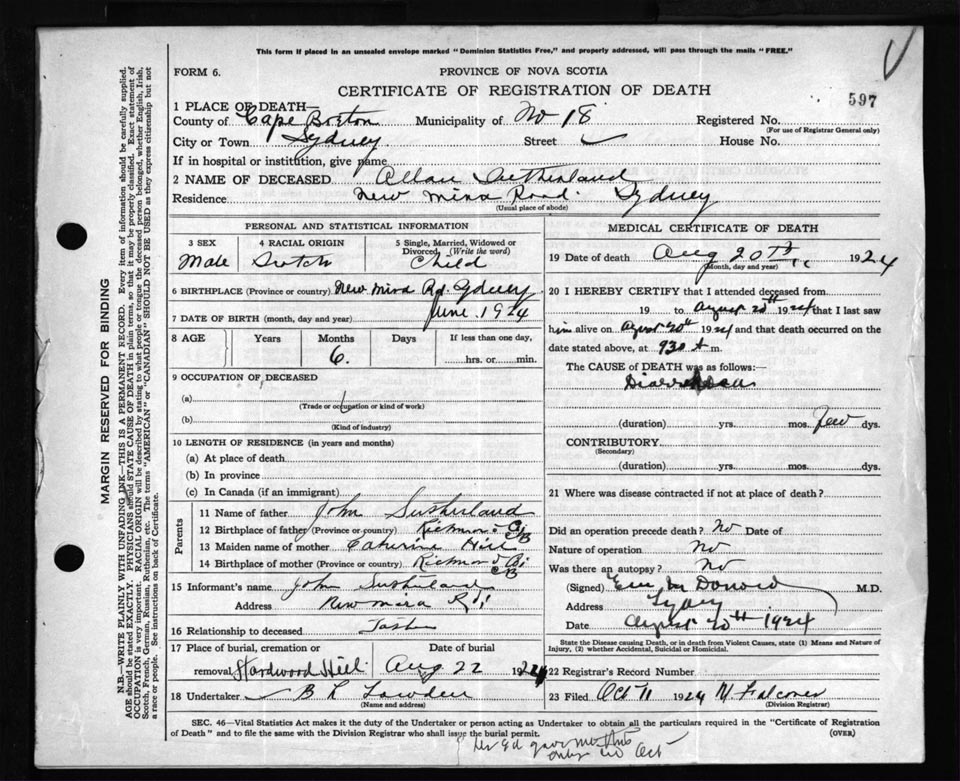 This form if placed in an unsealed envelope marked "Dominion Statistics Free," and properly addressed, will pass through the mails "FREE."
FORM 6.
PROVINCE OF NOVA SCOTIA
CERTIFICATE OF REGISTRATION OF DEATH
597
1 PLACE OF DEATH—
County of Cape Breton Municipality of No 18 Registered No.
(For use of Registrar General only)
City or Town Sydney Street House No.
If in hospital or institution, give name
2 NAME OF DECEASED Allan Sutherland
Residence New Mira Road. Sydney
(Usual place of abode)
PERSONAL AND STATISTICAL INFORMATION
3 SEX 4 RACIAL ORIGIN 5 Single, Married, Widowed or Divorced (Write the word)
Male Scotch Child
6 BIRTHPLACE (Province or country) New Mira Rd. Sydney
7 DATE OF BIRTH (month, day and year) June 1924
8 AGE Years Months Days If less than one day,
6. hrs. or min.
9 OCCUPATION OF DECEASED
(a)
(Trade or occupation or kind of work)
(b)
(Kind of industry)
10 LENGTH OF RESIDENCE (in years and months)
(a) At place of death
(b) In province
(c) In Canada (if an immigrant)
Parents
11 Name of father John Sutherland
12 Birthplace of father (Province or country) Richmond CB
13 Maiden name of mother Caterine Hill
14 Birthplace of mother (Province or country) Richmond CB
15 Informant's name John Sutherland
Address New Mira Rd
16 Relationship to deceased
17 Place of burial, cremation or removal Date of burial
Hardwood Hill Aug 22 1924
18 Undertaker B L Lowden
(Name and address)
MEDICAL CERTIFICATE OF DEATH
19 Date of death Aug 20th 1924
(Month, day and year)
20 I HEREBY CERTIFY that I attended deceased from
19 to August 20th 1924 that I last saw
him alive on August 20th 1924 and that death occurred on
date stated above, at 930 A m.
The CAUSE OF DEATH was as follows:—
(duration) yrs. mos. Few dys.
CONTRIBUTORY
(Secondary)
(duration) yrs. mos. dys.
21 Where was disease contracted if not at place of death?
Did an operation precede death? No Date of
Nature of operation No
Was there an autopsy? No
(Signed) M.D.
Address Sydney
Date August 20th 1924
State the Disease causing Death, or in death from Violent Causes, state (1) Means and Nature of
Injury, (2) whether Accidental, Suicidal or Homicidal.
22 Registrar's Record Number
23 Filed Oct 11 1924 M Falconer
(Division Registrar)
SEC. 46—Vital Statistics Act makes it the duty of the Undertaker or person acting as Undertaker to obtain all the particulars required in the "Certificate of Registration
of Death" and to file the same with the Division Registrar who shall issue the burial permit. (OVER)
MARGIN RESERVED FOR BINDING
N.B.—WRITE PLAINLY WITH UNFADING INK—THIS IS A PERMANENT RECORD. Every item of information should be carefully supplied.
AGE should be stated EXACTLY. PHYSICIANS should STATE CAUSE OF DEATH in plain terms, so that it may be properly classified. Exact statement of
OCCUPATION is very important. RACIAL ORIGIN will be described by stating to what people or tongue the deceased person belonged, whether English, Irish,
Scotch, French, German, Russian, Ruthenian, etc. The terms "AMERICAN" or "CANADIAN" SHOULD NOT BE USED as they express citizenship but not
a race or people. See instructions on back of Certificate.